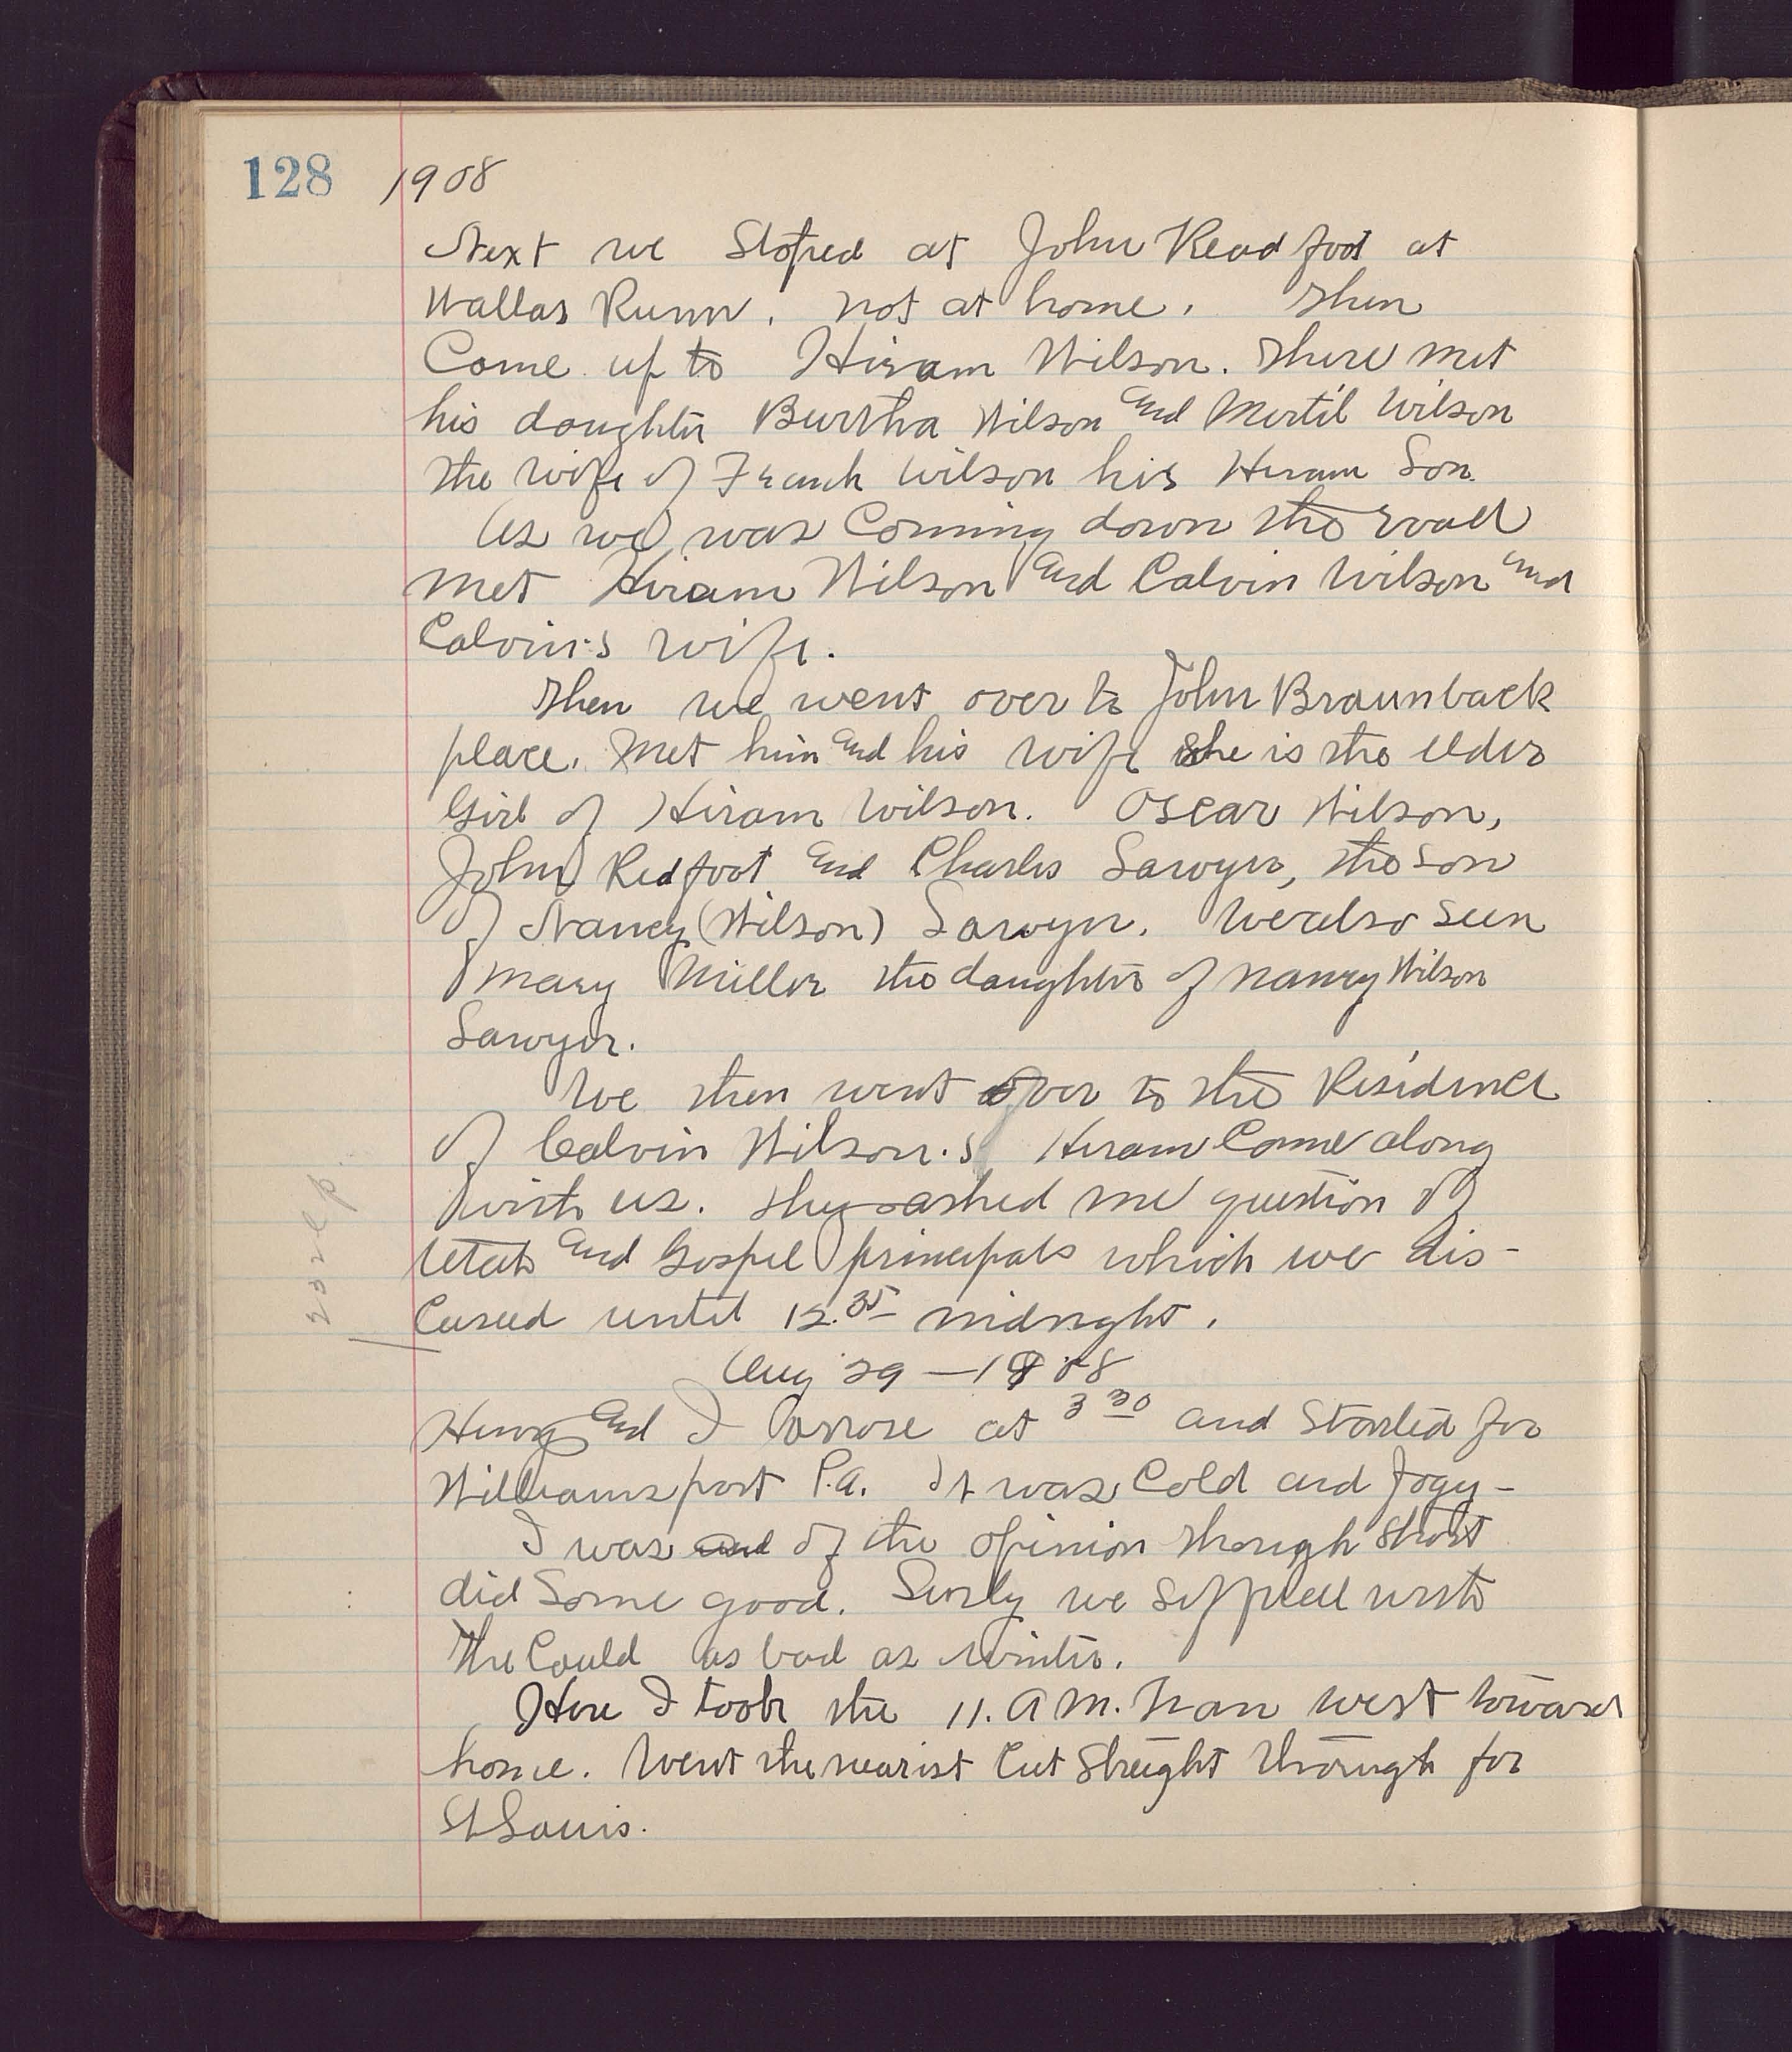 128 1908
Next we Stoped at John Readfoot at
Wallas Runn. not at home. Then
Come up to Hiram Wilson. There met
his daughter Burtha Wilson and Mertil Wilson
the wife of Frank Wilson his Hiram Son.
As we was Coming down the road
met Hiram Wilson and Calvin Wilson and
Calvin's wife.
Then we went over to John Braunback
place. Met him and his wife she is the elder
Girl of Hiram Wilson. Oscar Wilson,
John Redfoot and Charles Sawyer, the son
of Nancy (Wilson) Sawyer. We also seen
Mary Miller the daughter of Nancy Wilson
Sawyer.
We then went over to the Residence
of Calvin Wilson.s Hiram Come along
with us. They asked me question of
Utah and Gospel principals which we dis-
cused until 12.35 midnight.
Aug 29 - 1908
Henry and I arrose at 3 30 and Started for
Williamsport P.A. It was Cold and fogy-
I was and of the opinion though short
did Some good. Surly we Sufferd with
the Could as bad as winter.
Here I took the 11. A M. Tran west toward
home. Went the nearist Cut Streight through for
St Louis.